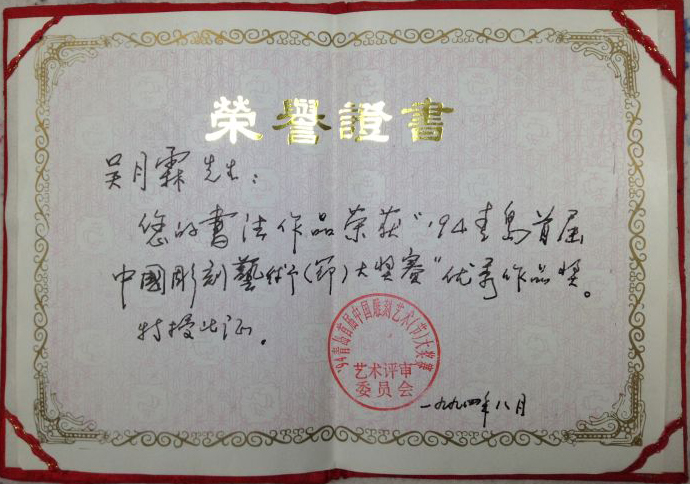 榮譽證書
吴月霖先生：
您的書法作品荣获“'94青島首届
中國彫刻藝術(節)大奖赛”优秀作品奖。
特授此证。
'94青岛首届中国雕刻艺术(节)大奖赛
艺术评审
委员会
一九九四年八月